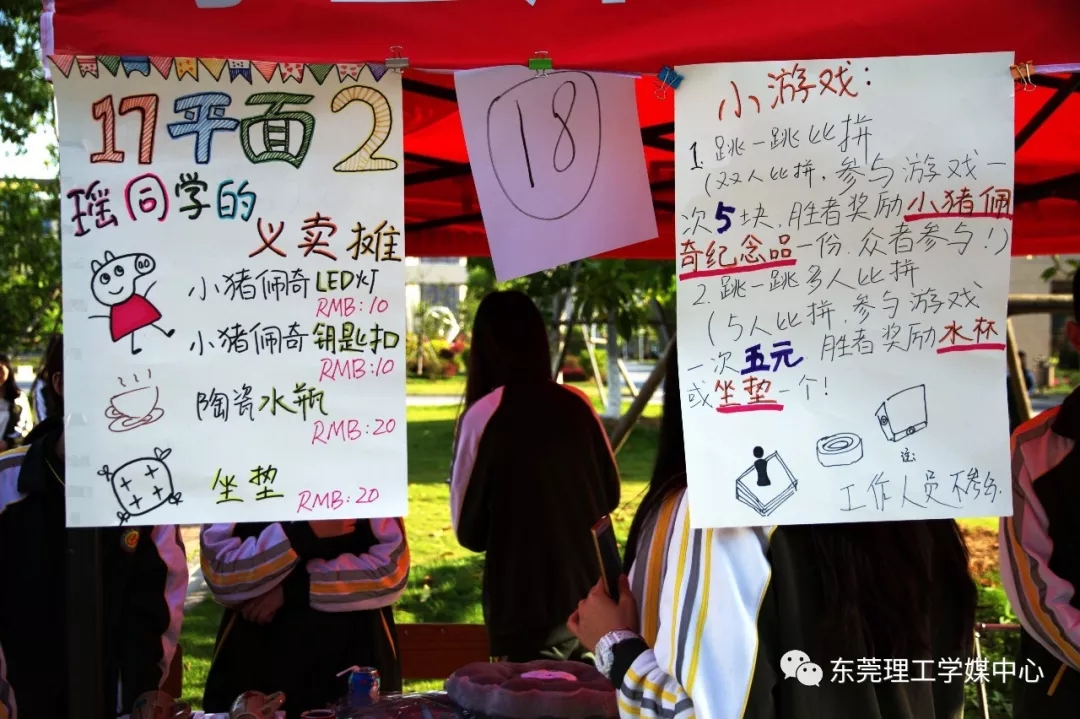 17平面2
瑶同学的
义卖摊
小猪佩奇LED灯
RMB:10
小猪佩奇钥匙扣
RMB:10
陶瓷水瓶
RMB:20
坐垫
RMB:20
18
小游戏:
1.跳一跳比拼
(双人比拼,参与游戏一
次5块.胜者奖励小猪佩
奇纪念品一份.众者参与!)
2.跳一跳多人比拼
(5人比拼,参与游戏
一次五元 胜者奖励水杯
或坐垫一个!
工作人员不参与.
东莞理工学媒中心